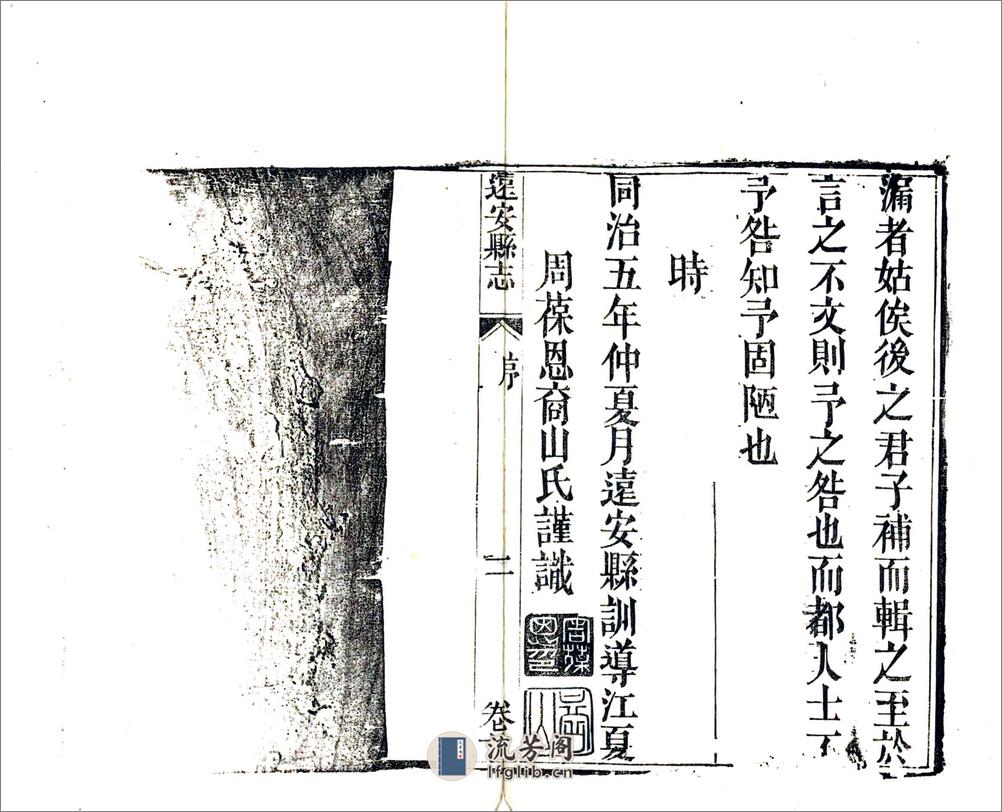 漏者姑俟後之君子補而輯之至於
言之不文則予之咎也而都人士不
予咎知予固陋也
時
同治五年仲夏月遠安縣訓導江夏
周葆恩裔山氏謹識
周葆恩印
遠安縣志
序
二
卷
流芳阁
lfglib.cn